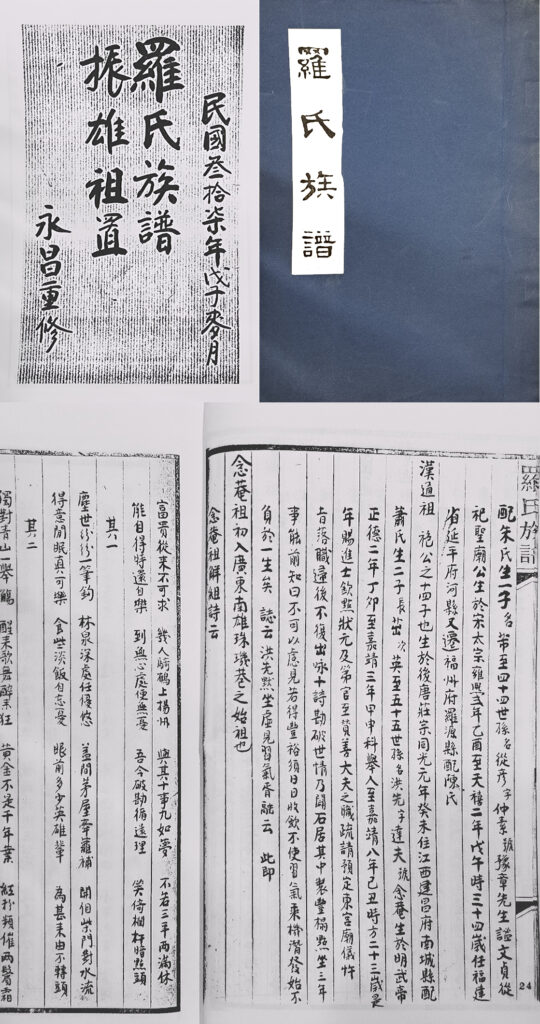 民國叁拾柒年戊子麥月
羅氏族譜
振雄祖置
永昌重修
羅氏族譜
羅氏族譜
24
配朱氏生一子名常至四十四世孫名從彥字仲素號豫章先生諡文貞從
祀聖廟公生於宋太宗雍熙弍年乙酉至天禧二年戊午時三十四歲任福建
省延平府河縣又遷福州府羅源縣配陳氏
漢過祖 裕公之十四子也生於後唐莊宗同光元年癸未任江西建昌府南城縣配
蕭氏生二子長 次英至五十五世孫名洪先字達夫號念菴生於明武帝
正德二年丁卯至嘉靖三年甲申科舉人至嘉靖八年己丑時方二十三歲是
年賜進士欽點狀元及第官至贊善大夫之職疏請預定東宮廟儀忤
旨落職歸後不復出咏十詩勘破世情乃闢石居其中製豐榻點坐三年
事能前知曰不可以意見若得豐裕須日日收飲不使習氣乘機潛發始不
負於一生矣 誌云洪先點坐虛見習氣昏融云 此即
念菴祖初入廣東南雄珠璣巷之始祖也
念菴祖解組詩云
富貴從來不可求 幾人騎鶴上揚州 與其十事九如夢 不若三平兩滿休
能自得時還自樂 到無心處便無憂 吾今破勘循遠理 笑倚欄杆暗點頭
其一
塵世紛紛一筆鈎 林泉深處任優悠 蓋間茅屋牽蘿補 開個柴門對水流
得意閒眠真可樂 食些淡飯自忘憂 眼前多少英雄輩 為甚來由不轉頭
其二
獨對青山一舉觴 醒來歌舞醉來狂 黃金不是千年業 紅粉類催兩鬢霜